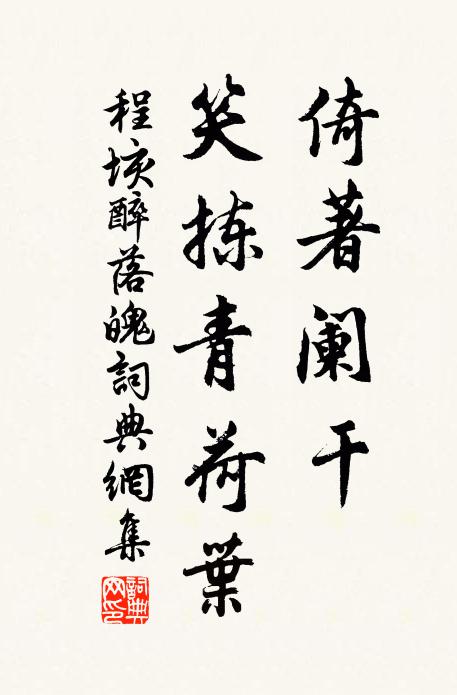 倚著阑干
笑拣青荷葉
程垓醉落魄詞典網集
詞典
网印